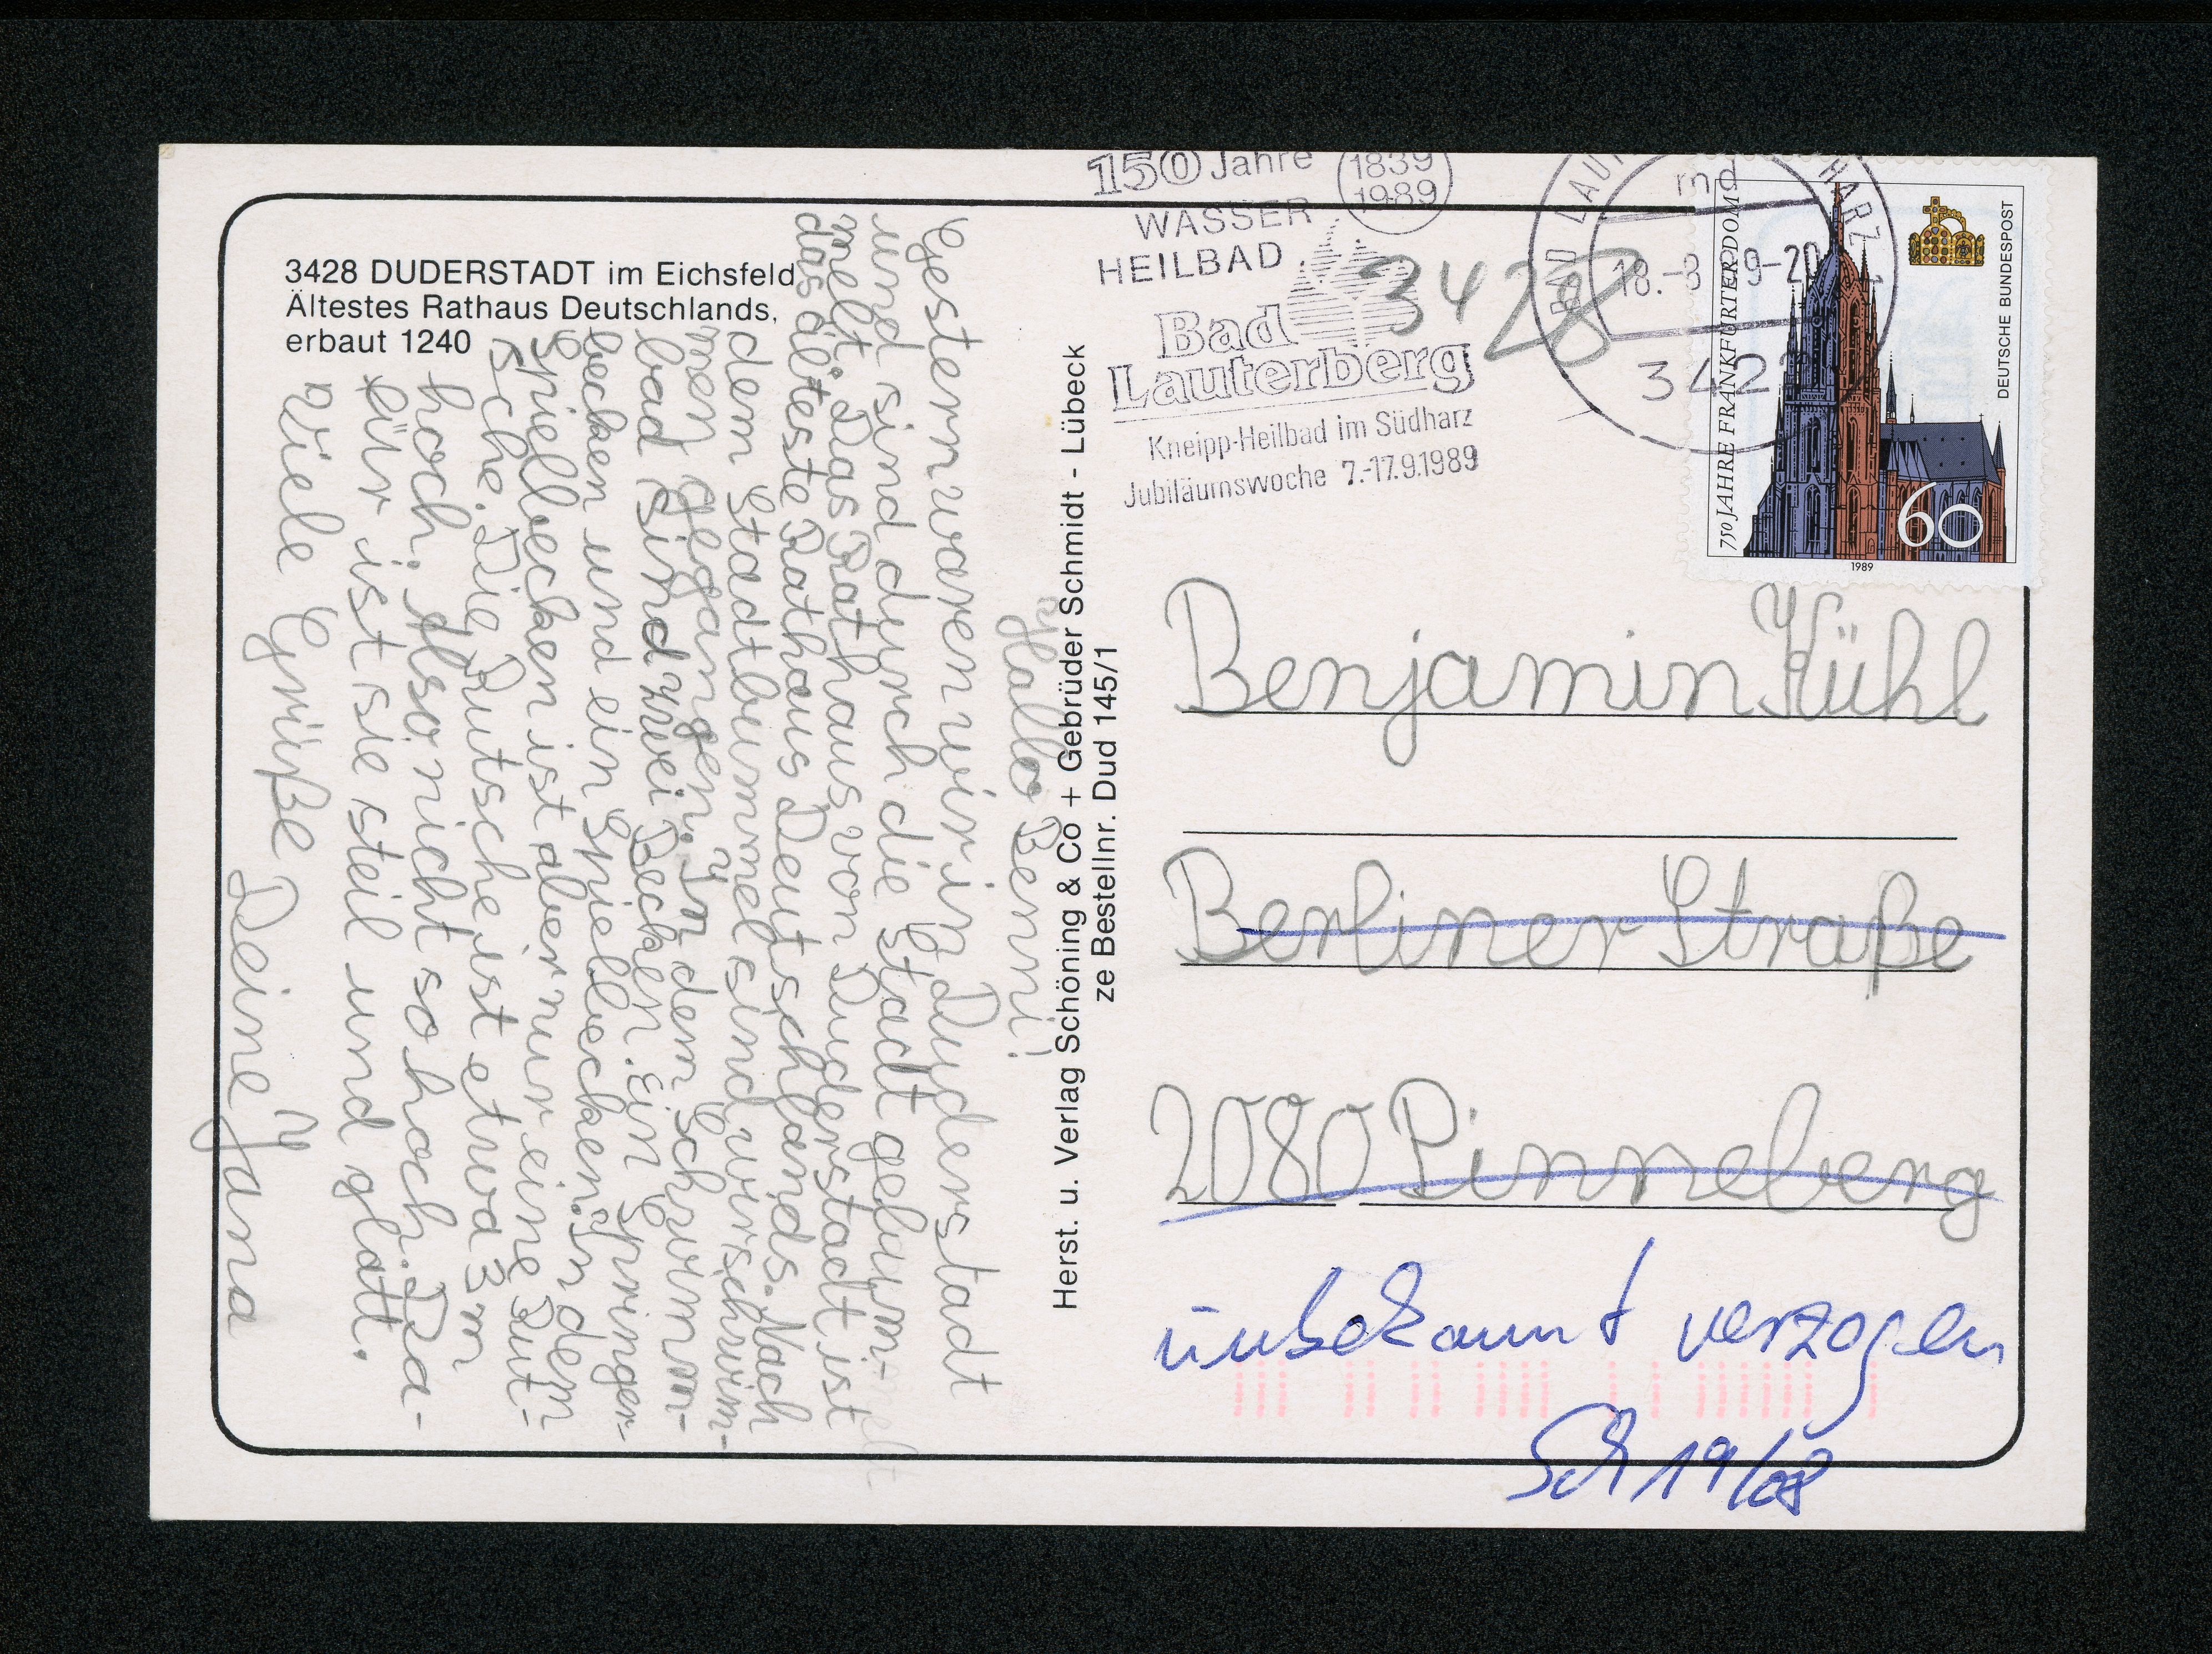 3428 DUDERSTADT im Eichsfeld
Ältestes Rathaus Deutschlands,
erbaut 1240
Hallo Benni!
Gestern waren wir in Duderstadt
und sind durch die Stadt gebum-
melt. Das Rathaus von Duderstadt ist
das älteste Rathaus Deutschlands. Nach
dem Stadtbummel sind wir schwim-
men gegangen. In dem Schwimm-
bad sind zwei Becken. Ein Springer-
becken und ein Spielbecken. In dem
Spielbecken ist aber nur eine Rut-
sche. Die Rutsche ist etwa 3 m
hoch. Also nicht so hoch. Da-
für ist sie steil und glatt.
Viele Grüße Deine Jana
Herst. u. Verlag Schöning & Co + Gebrüder Schmidt - Lübeck
ze Bestellnr. Dud 145/1
150 Jahre
1839
1989
WASSER
HEILBAD
Bad
Lauterberg
Kneipp-Heilbad im Südharz
Jubiläumswoche 7.-17.9.1989
3428
BAD HARZ
18.-8
342
750 JAHRE FRANKFURTER DOM
DEUTSCHE BUNDESPOST
60
1989
Benjamin Kühl
Berliner Straße
2080 Pinneberg
unbekannt verzogen
Sch 19/08